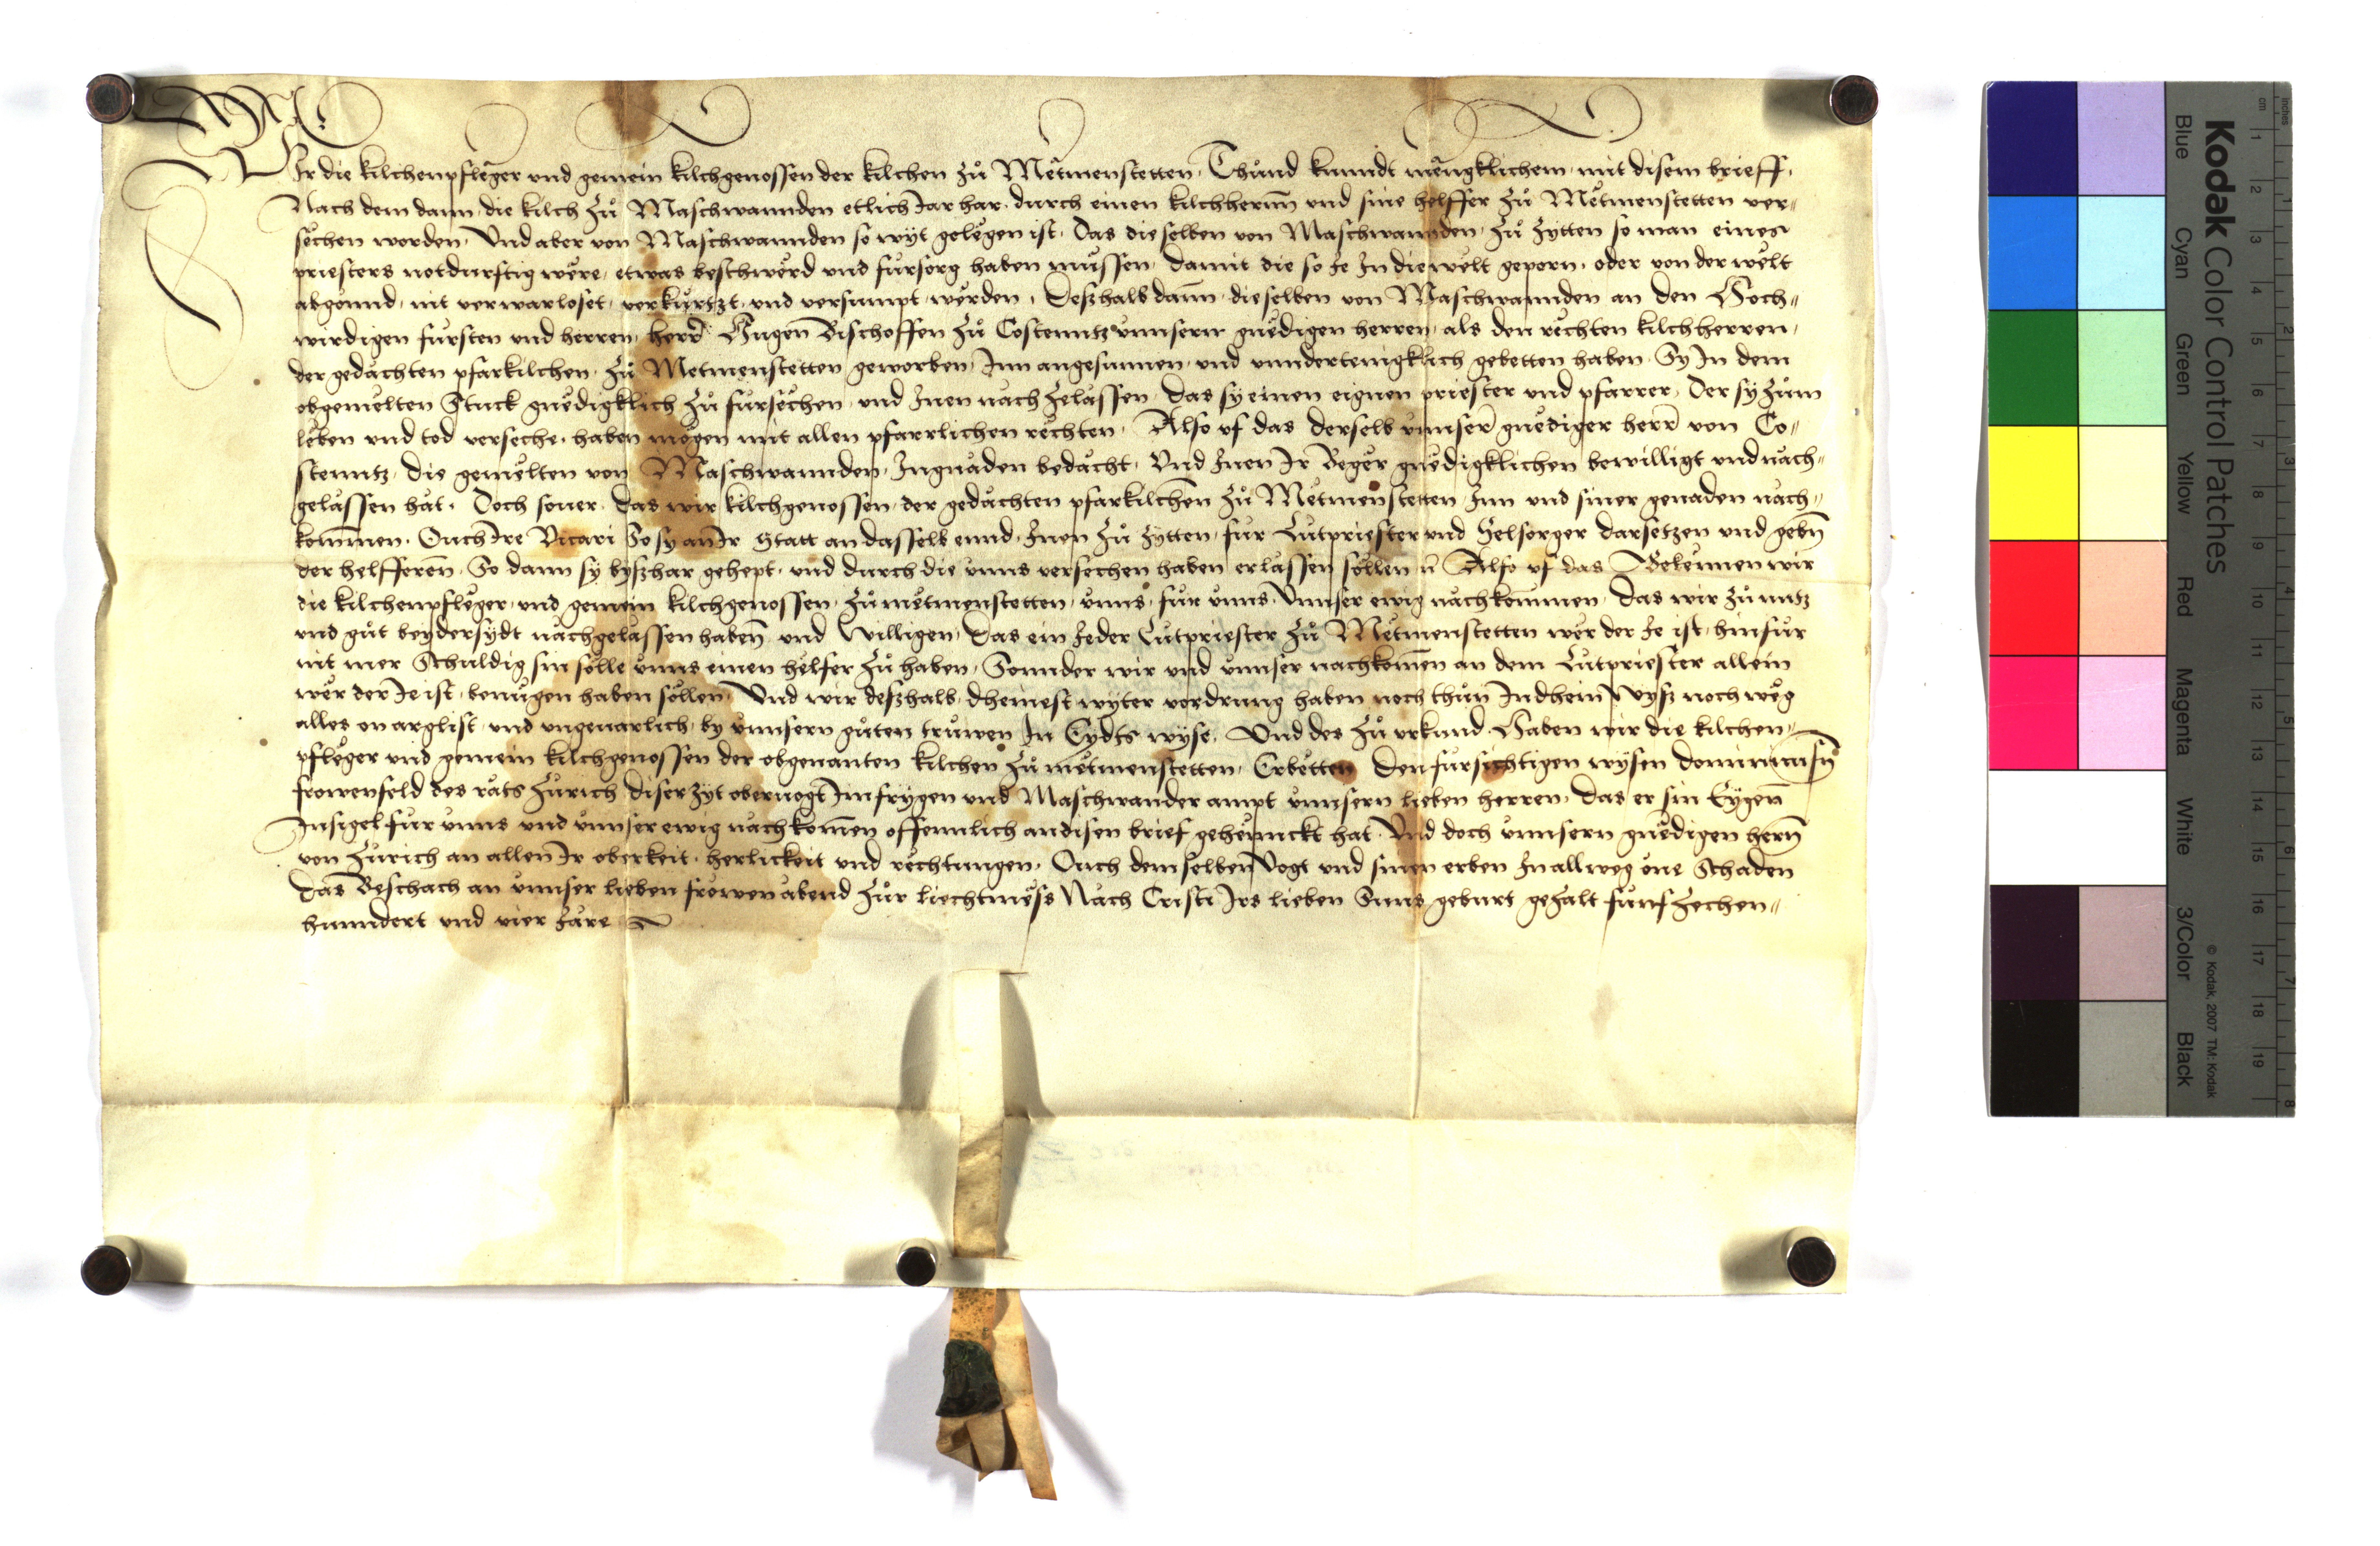 Wir die kilchenpflëger und gemein kilchgenossen der kilchen zů Mëtmenstetten, Thůnd kunndt mëngklichem, mit disem brieff,
Nach dem dann, die kilch zů Maschwannden etlich Jar har, durch einen kilchherrnn und sine helffer zů Mëtmenstetten ver„
sëchen worden, Und aber von Maschwannden so wyt gelëgen ist, Das dieselben von Maschwannden, zů zytten so man eines
priesters notdurftig wëre, etwas beschwërd und fürsorg haben mussen, damit die so Je In die wëlt geporn, oder von der wëlt
abgonnd, nit verwarloset, verkürtzt, und versumpt, wërden, Deßhalb dann, dieselben von Maschwannden an den Hoch„
wirdigen fürsten und herren, herr Hugen Bischoffen zů Costenntz unnserm gnëdigen herren, als den rëchten kilchherren,
der gedachten pfarkilchen, zů Metmenstetten geworben, Inn angesunnen, und unndertenigklich gebetten haben, Sy In dem
obgemëlten Stuck gnëdigklich zů fürsëchen, und Inen nach zelassen, das sy einen eignen priester und pfarrer, Der sy zům
lëben und tod versëche, haben mögen mit allen pfarrlichen rëchten, Also uf das derselb unnser gnëdiger herr von Co„
stenntz, die gemëlten von Maschwannden, In gnaden bedacht, Und Inen Ir Beger gnëdigklichen bewilligt und nach„
gelassen hat, Doch sover, das wir kilchgenossen, der gedachten pfarkilchen zů Mëtmenstetten, Inn und siner genaden nach„
kommen, Ouch Ire Vicari So sy an Ir Statt an dasselb ennd, Inen zů zytten, für Lütpriester und Selsorger darsetzen und gebn
der helfferen, So dann sy byßhar gehept, und durch die unns versechen haben erlassen söllen Also uf das Bekennen wir
die kilchenpflëger, und gemein kilchgenossen, zů mëtmenstetten, unns, für unns, Unnser ewig nachkommen, Das wir zů nutz
und gůt beydersydt nachgelassen haben und Willigen, Das ein Jeder Lütpriester zů Mëtmenstetten wër der Je ist, hinfür
nit mer Schuldig sin sölle unns einen hëlfer zů haben, Sonnder wir und unnser nachkomen an dem Lütpriester allein
wër der Je ist, benügen haben söllen, Und wir deßhalb, dheinest wyter vordrung haben noch thůn In dhein Wyß noch wëg
alles on arglist, und ungevarlich, by unnsern gůten trüwen In Eydts wyse, Und des zů urkund, Haben wir die kilchen„
pflëger und gemein kilchgenossen der obgenanten kilchen zů mëtmenstetten, Erbëtten Den fürsichtigen wysen dominicus
frowenfeld des rats Zürich diser zyt obervogt Im frygen und Maschwander ampt unnsern lieben herren, das er sin Eygen
Insigel für unns und unnser ewig nachkomen offennlich an disen brief gehennckt hat, Und doch unnsern gnëdigen hern
von Zürich an allen Ir oberkeit, herlickeit und rëchtungen, Ouch dem selben Vogt und sinen erben In allweg one Schaden
Das Beschach an unnser lieben frowen abend zůr liechtmëss Nach Cristi Irs lieben Suns geburt gezalt fünfzechen„
hunndert und vier Jare
Kodak Color Control Patches
Blue Cyan Green Yellow Red Magenta White 3/Color Black
© Kodak, 2007 TM: Kodak
cm 1 2 3 4 5 6 7 8 9 10 11 12 13 14 15 16 17 18 19
inches 1 2 3 4 5 6 7 8